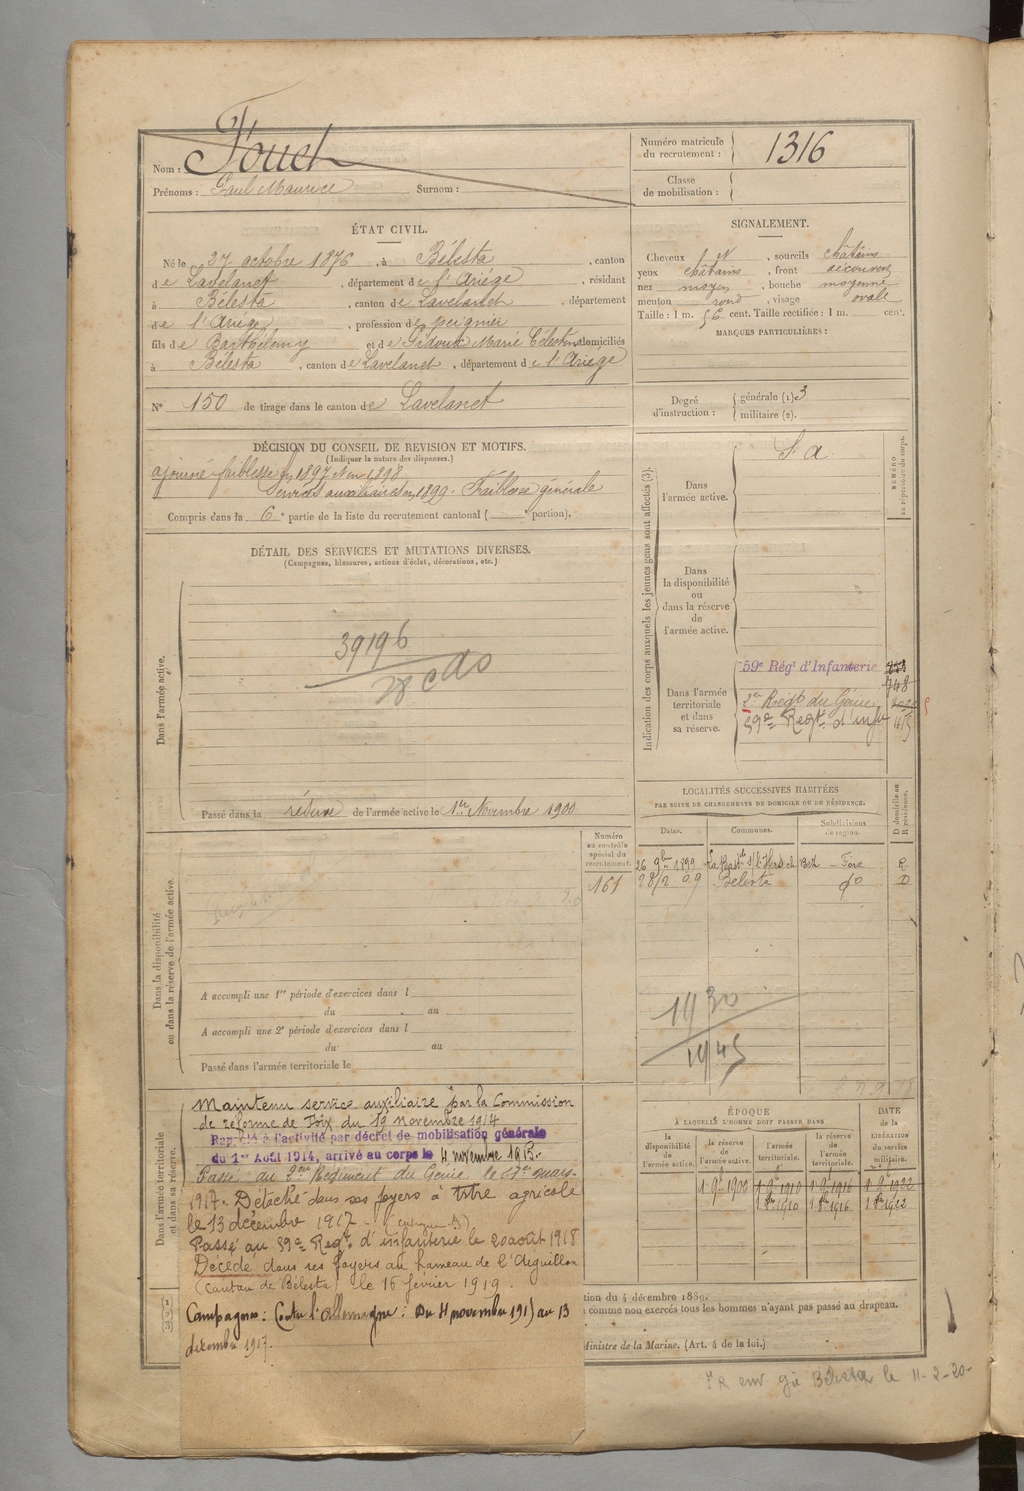 Nom : Fouet
Prénoms : Paul Maurice Surnom :
Numéro matricule du recrutement : 1316
Classe de mobilisation :
ÉTAT CIVIL.
Né le 27 octobre 1876, à Bélesta, canton
de Lavelanet, département de l'Ariège, résidant
à Bélesta, canton de Lavelanet, département
de l'Ariège, profession de peignier
fils de Barthélemy et de Sidouic Marie Célestine domiciliés
à Bélesta, canton de Lavelanet, département de l'Ariège
N° 150 de tirage dans le canton de Lavelanet
SIGNALEMENT.
Cheveux et, sourcils châtains
yeux châtains, front découvert
nez moyen, bouche moyenne
menton rond, visage ovale
Taille : 1 m. 56 cent. Taille rectifiée : 1 m. cent.
MARQUES PARTICULIÈRES :
Degré d'instruction : générale (1) 3
militaire (2).
DÉCISION DU CONSEIL DE REVISION ET MOTIFS.
(Indiquer la nature des dispenses.)
ajourné faiblesse en 1897 et en 1898
Services auxiliaires en 1899. Faiblesse générale
Compris dans la 6e partie de la liste du recrutement cantonal ( e portion).
DÉTAIL DES SERVICES ET MUTATIONS DIVERSES.
(Campagnes, blessures, actions d'éclat, décorations, etc.)
Dans l'armée active.
39196
Passé dans la réserve de l'armée active le 1er Novembre 1900
Indication des corps auxquels les jeunes gens sont affectés (3).
NUMÉRO au répertoire du corps.
Dans l'armée active.
S a
Dans la disponibilité ou dans la réserve de l'armée active.
Dans l'armée territoriale et dans sa réserve.
59e Régt d'Infanterie
748
2me Régt du Génie
59e Regt. d'infie
LOCALITÉS SUCCESSIVES HABITÉES
PAR SUITE DE CHANGEMENTS DE DOMICILE OU DE RÉSIDENCE.
Dates. Communes. Subdivisions de région. D domicile ou R résidence.
26 9bre 1899 La Bastde s/ l'Hers Foix R
28/2 09 Bélesta do D
1930
1945
Dans la disponibilité ou dans la réserve de l'armée active.
Numéro au contrôle spécial du recrutement.
161
A accompli une 1re période d'exercices dans l
du au
A accompli une 2e période d'exercices dans l
du au
Passé dans l'armée territoriale le
Dans l'armée territoriale et dans sa réserve.
Maintenu service auxiliaire par la Commission
de réforme de Foix du 19 novembre 1914
Rappelé à l'activité par décret de mobilisation générale
du 1er Août 1914, arrivé au corps le 4 novembre 1915.
Passé au 2me Régiment du Génie le 1er mars
1917. Détaché dans ses foyers à titre agricole
le 13 décembre 1917
Passé au 59e Regt. d'infanterie le 20 août 1918
Décédé dans ses foyers au hameau de l'Aiguillon
(canton de Bélesta) le 16 février 1919.
Campagnes : Contre l'Allemagne : Du 4 novembre 1915 au 13
décembre 1917.
ÉPOQUE
À LAQUELLE L'HOMME DOIT PASSER DANS
la disponibilité de l'armée active. la réserve de l'armée active. l'armée territoriale. la réserve de l'armée territoriale.
DATE DE LA LIBÉRATION du service militaire.
1 9bre 1900 1 9bre 1910 1 9bre 1916 1 9bre 1922
1 8bre 1910 1 8bre 1916 1 8bre 1922
tion du 4 décembre 1889.
comme non exercés tous les hommes n'ayant pas passé au drapeau.
Ministre de la Marine. (Art. 4 de la loi.)
Bélesta le 11-2-20-